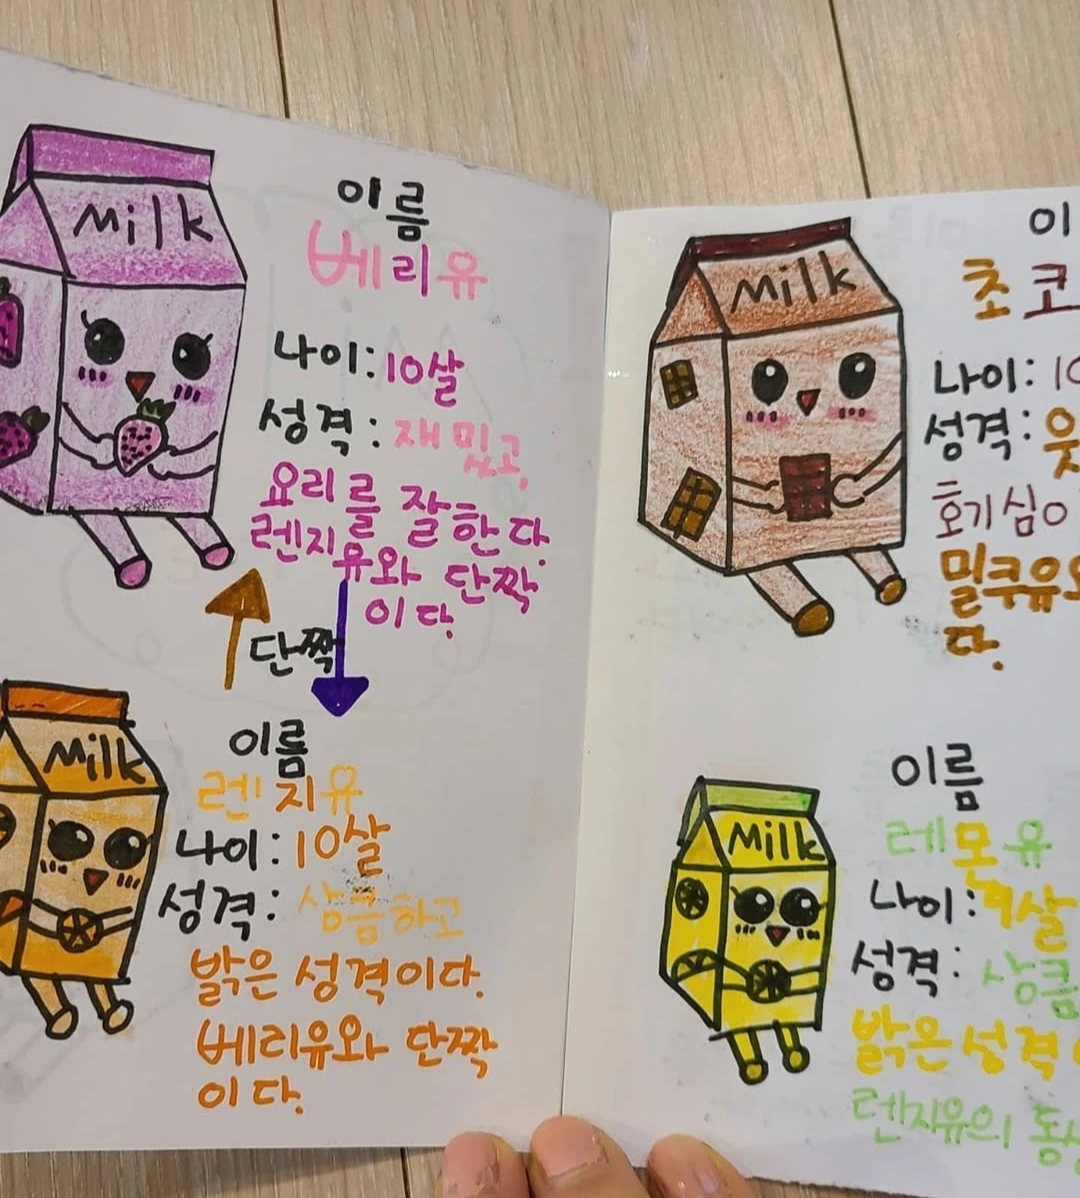 Milk
이름
베리유
나이:10살
성격: 재밌고,
요리를 잘한다.
렌지유와 단짝
이다.
단짝
Milk
이름
렌지유
나이:10살
성격: 상큼하고
밝은 성격이다.
베리유와 단짝
이다.
Milk
이
초코
나이: 10
성격:
호기심이
밀쿠유와
다.
Milk
이름
레몬유
나이:9살
성격: 상큼
밝은 성격
렌지유의 동생